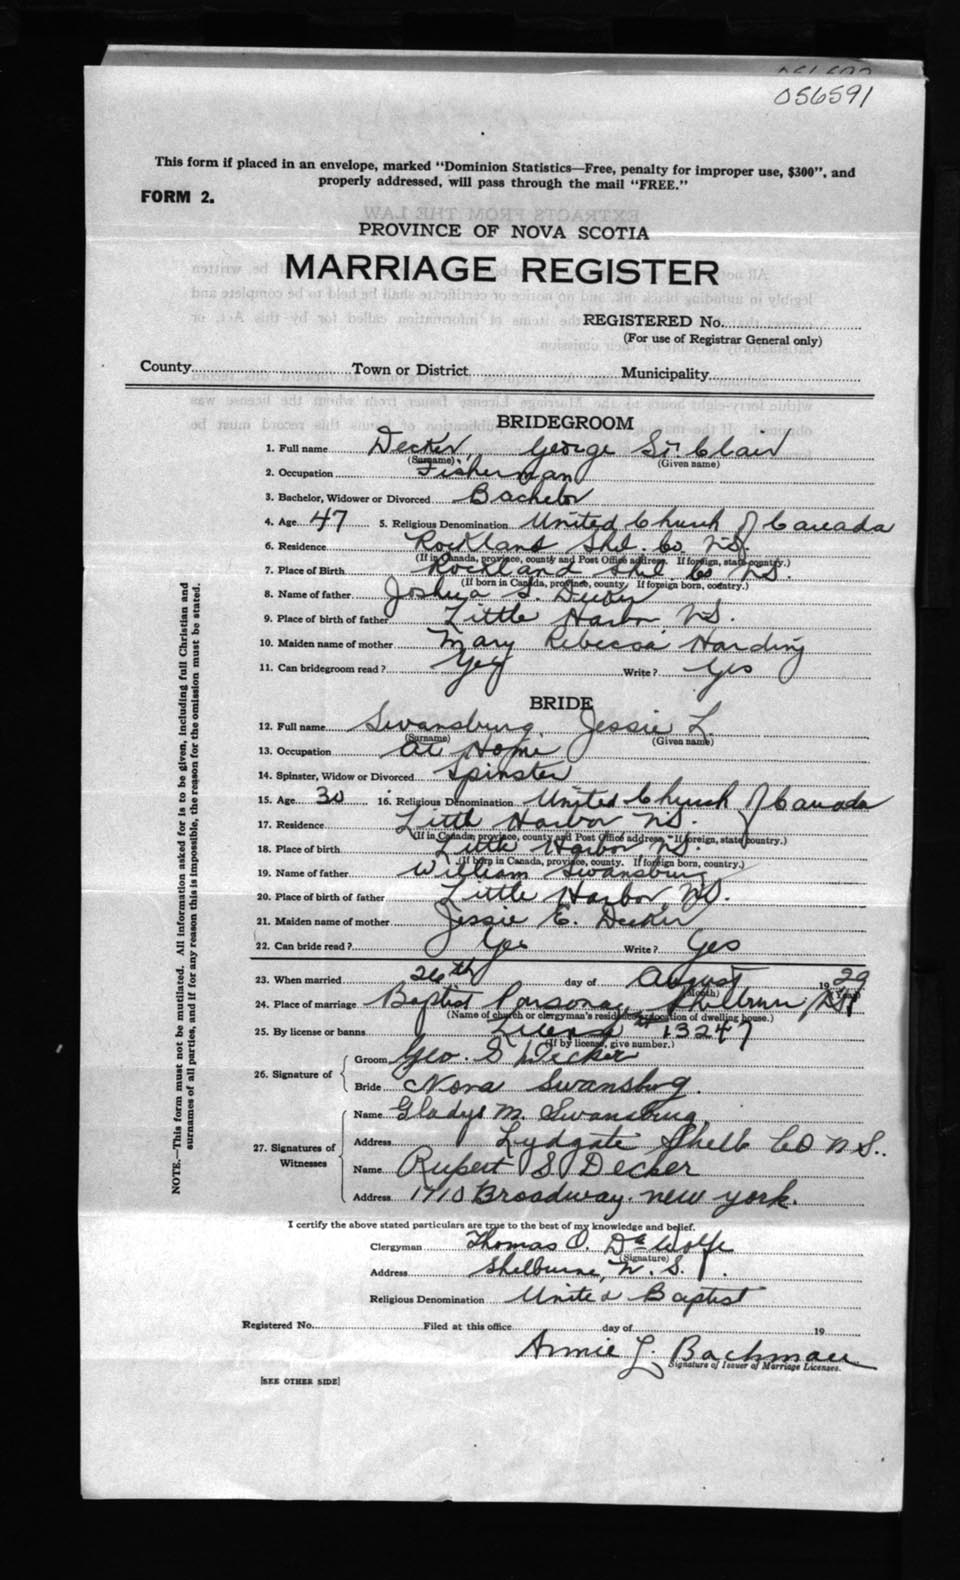 056591
This form if placed in an envelope, marked "Dominion Statistics—Free, penalty for improper use, $300", and
properly addressed, will pass through the mail "FREE."
FORM 2.
PROVINCE OF NOVA SCOTIA
MARRIAGE REGISTER
REGISTERED No.
(For use of Registrar General only)
County Town or District Municipality
BRIDEGROOM
1. Full name Decker, George St. Clair
(Surname) (Given name)
2. Occupation Fisherman
3. Bachelor, Widower or Divorced Bachelor
4. Age 47 5. Religious Denomination United Church of Canada
6. Residence Rockland Shel. Co N.S.
(If in Canada, province, county and Post Office address. If foreign, state country.)
7. Place of Birth Rockland Shel Co N.S.
(If born in Canada, province, county. If foreign born, country.)
8. Name of father Joshua S. Decker
9. Place of birth of father Little Harbor, N.S.
10. Maiden name of mother Mary Rebecca Harding
11. Can bridegroom read? Yes Write? Yes
BRIDE
12. Full name Swansburg, Jessie L.
(Surname) (Given name)
13. Occupation At Home
14. Spinster, Widow or Divorced Spinster
15. Age 30 16. Religious Denomination United Church of Canada
17. Residence Little Harbor N.S.
(If in Canada, province, county and Post Office address. If foreign, state country.)
18. Place of birth Little Harbor N.S.
(If born in Canada, province, county. If foreign born, country.)
19. Name of father William Swansburg
20. Place of birth of father Little Harbor, N.S.
21. Maiden name of mother Jessie E. Decker
22. Can bride read? Yes Write? Yes
23. When married 26th day of August 1929
(Month)
24. Place of marriage Baptist Parsonage Shelburne N.S.
(Name of church or clergyman's residence or location of dwelling house.)
25. By license or banns License # 13247
(If by license, give number.)
26. Signature of
Groom Geo. S Decker
Bride Nora Swansburg.
27. Signatures of Witnesses
Name Gladys M. Swansburg
Address Lydgate Shelb Co N S.
Name Rupert S Decker
Address 1710 Broadway. new york.
I certify the above stated particulars are true to the best of my knowledge and belief.
Clergyman Thomas O. DeWolfe
(Signature)
Address Shelburne, N. S.
Religious Denomination United Baptist
Registered No. Filed at this office day of 19
Annie L. Bachman
Signature of Issuer of Marriage Licenses.
[SEE OTHER SIDE]
NOTE.—This form must not be mutilated. All information asked for is to be given, including full Christian and
surnames of all parties, and if for any reason this is impossible, the reason for the omission must be stated.